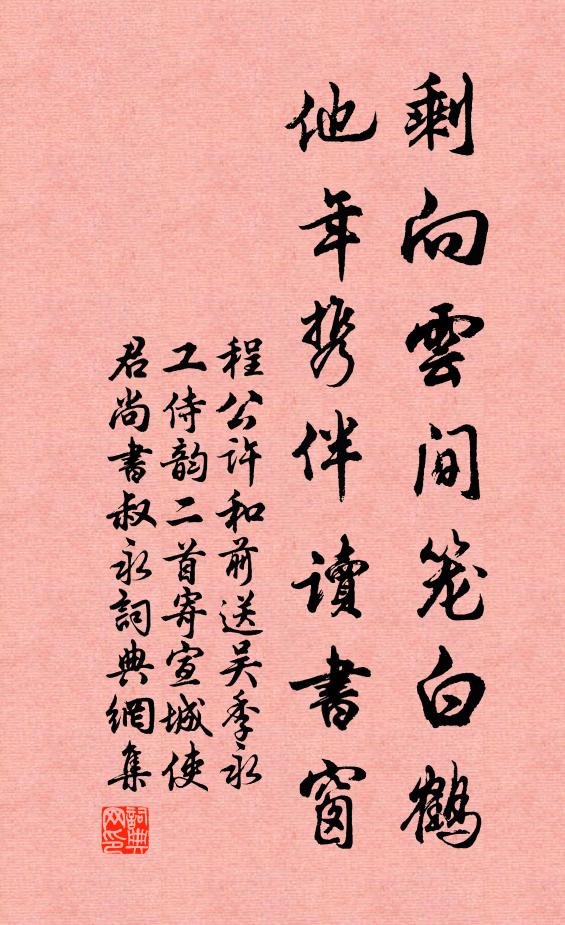 剩向雲間笼白鶴
他年携伴讀書窗
程公许和前送吴季永
工侍韵二首寄宣城使
君尚書叔永詞典網集
詞典网印